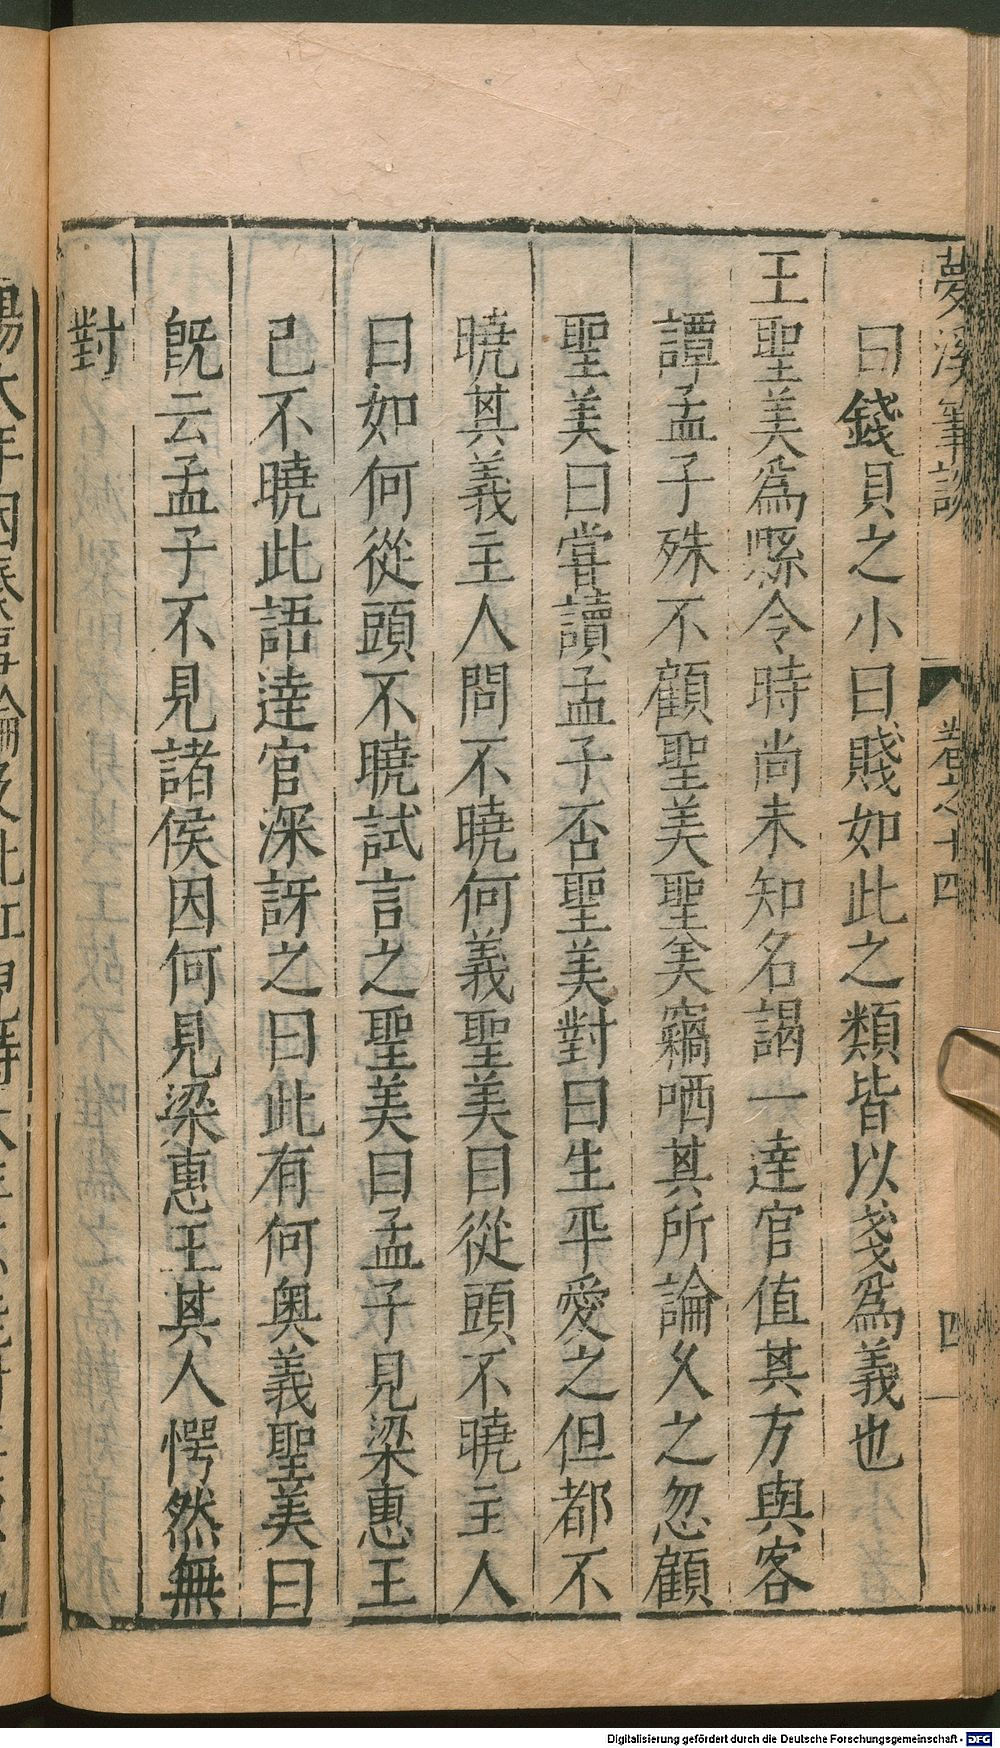 夢溪筆談 卷之十四 四
曰錢貝之小曰賤如此之類皆以戔爲義也
王聖美爲縣令時尚未知名謁一達官值其方與客
譚孟子殊不顧聖美聖美竊哂其所論久之忽顧
聖美曰嘗讀孟子否聖美對曰生平愛之但都不
曉其義主人問不曉何義聖美曰從頭不曉主人
曰如何從頭不曉試言之聖美曰孟子見梁惠王
已不曉此語達官深訝之曰此有何奥義聖美曰
既云孟子不見諸侯因何見梁惠王其人愕然無
對
Digitalisierung gefördert durch die Deutsche Forschungsgemeinschaft - DFG